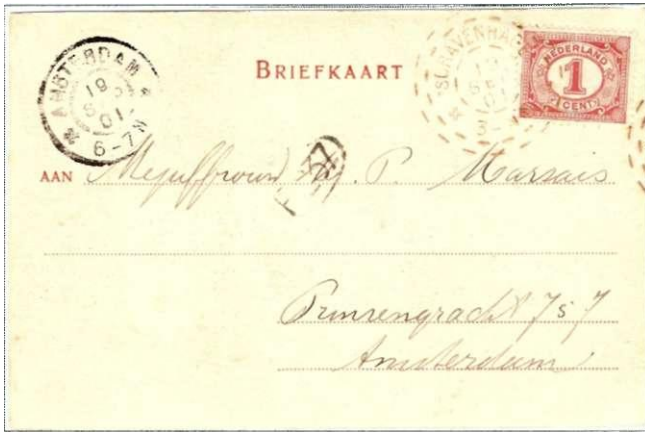 AMSTERDAM
19 SEP 01
6-7N
BRIEFKAART
'SGRAVENHA
NEDERLAND
1
CENT
AAN Mejuffrouw P. Marsais
Prinsengracht 757
Amsterdam